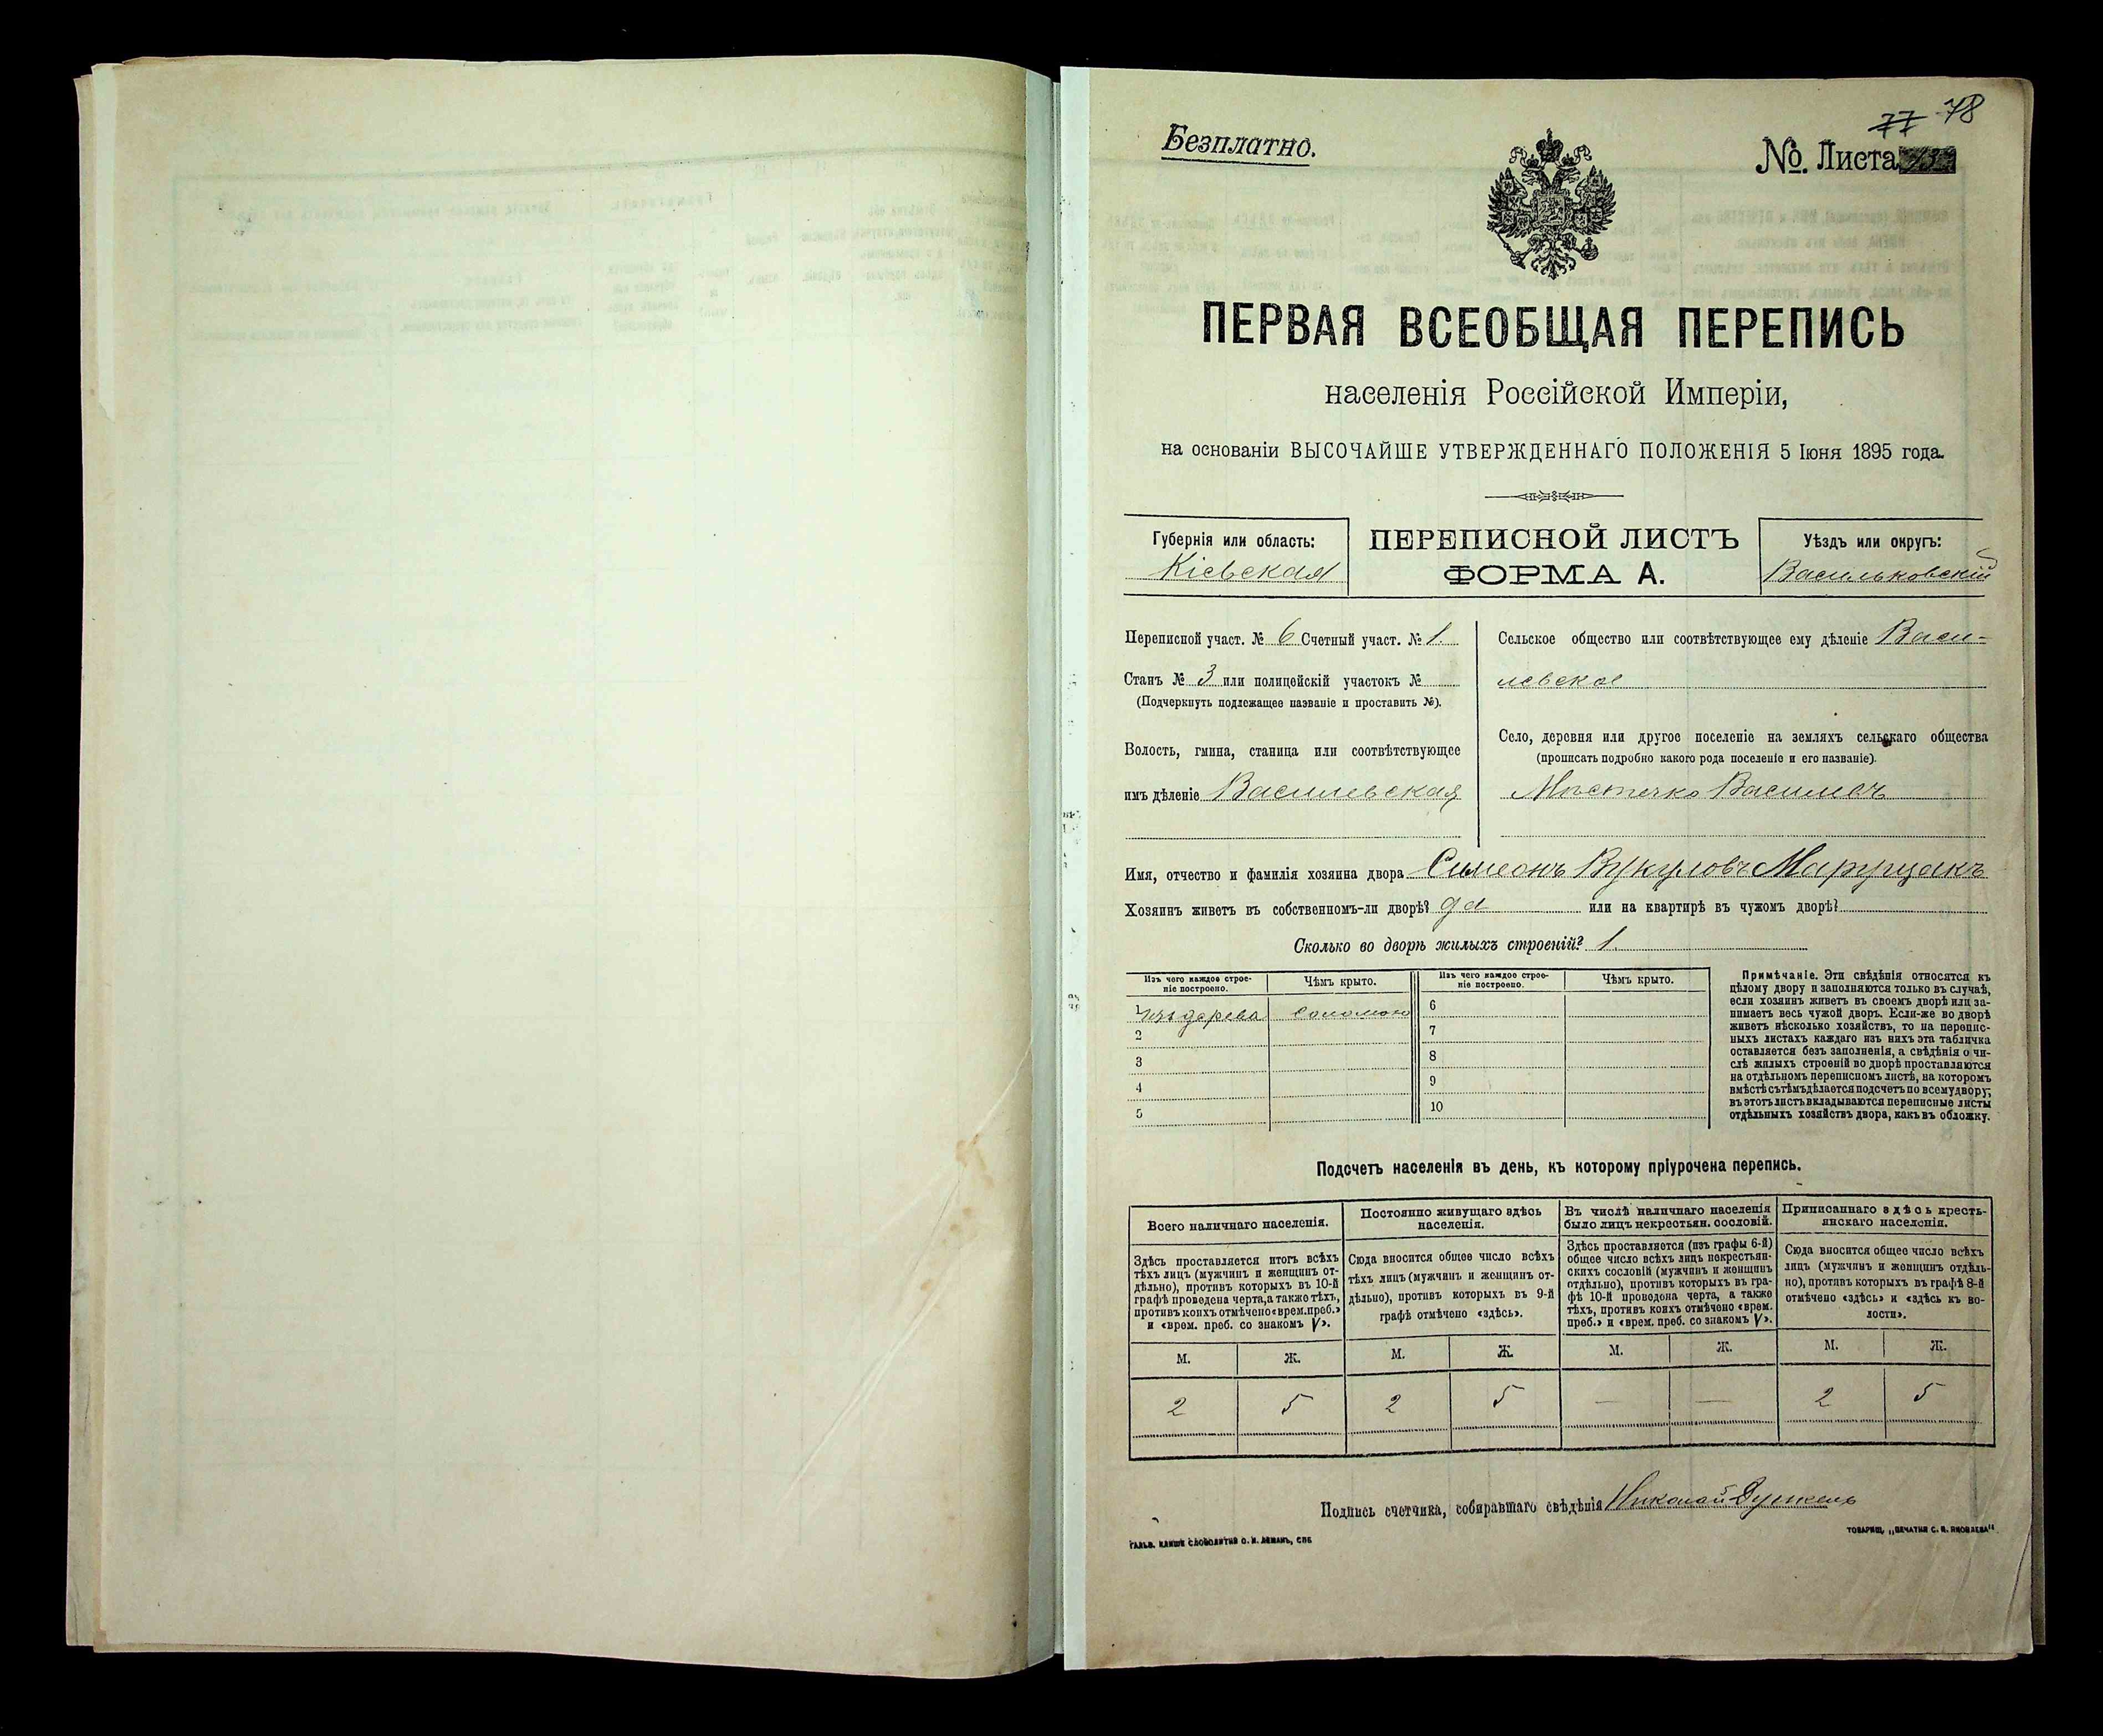 77 78
Безплатно.
№. Листа
ПЕРВАЯ ВСЕОБЩАЯ ПЕРЕПИСЬ
населенія Россійской Имперіи,
на основаніи ВЫСОЧАЙШЕ УТВЕРЖДЕННАГО ПОЛОЖЕНІЯ 5 Іюня 1895 года.
Губернія или область:
Кіевская
ПЕРЕПИСНОЙ ЛИСТЪ
ФОРМА А.
Уѣздъ или округъ:
Васильковскій
Переписной участ. № 6 Счетный участ. № 1.
Станъ № 3 или полицейскій участокъ №
(Подчеркнуть подлежащее названіе и проставить №).
Волость, гмина, станица или соотвѣтствующее
имъ дѣленіе Василевская
Сельское общество или соотвѣтствующее ему дѣленіе Васи-
левское
Село, деревня или другое поселеніе на земляхъ сельскаго общества
(прописать подробно какого рода поселеніе и его названіе).
Мѣстечко Василевъ
Имя, отчество и фамилія хозяина двора Симеонъ Вукуловъ Марущакъ
Хозяинъ живетъ въ собственномъ-ли дворѣ? да или на квартирѣ въ чужомъ дворѣ?
Сколько во дворѣ жилыхъ строеній? 1.
Изъ чего каждое строе-
ніе построено.
Чѣмъ крыто.
1 изъ дерева соломою
2
3
4
5
Изъ чего каждое строе-
ніе построено.
Чѣмъ крыто.
6
7
8
9
10
Примѣчаніе. Эти свѣдѣнія относятся къ
цѣлому двору и заполняются только въ случаѣ,
если хозяинъ живетъ въ своемъ дворѣ или за-
нимаетъ весь чужой дворъ. Если-же во дворѣ
живетъ нѣсколько хозяйствъ, то на перепис-
ныхъ листахъ каждаго изъ нихъ эта табличка
оставляется безъ заполненія, а свѣдѣнія о чи-
слѣ жилыхъ строеній во дворѣ проставляются
на отдѣльномъ переписномъ листѣ, на которомъ
вмѣстѣ съ тѣмъ дѣлается подсчетъ по всему двору;
въ этотъ листъ вкладываются переписные листы
отдѣльныхъ хозяйствъ двора, какъ въ обложку.
Подсчетъ населенія въ день, къ которому пріурочена перепись.
Всего наличнаго населенія.
Здѣсь проставляется итогъ всѣхъ
тѣхъ лицъ (мужчинъ и женщинъ от-
дѣльно), противъ которыхъ въ 10-й
графѣ проведена черта, а также тѣхъ,
противъ коихъ отмѣчено «врем. преб.»
и «врем. преб. со знакомъ V».
М. Ж.
2 5
Постоянно живущаго здѣсь
населенія.
Сюда вносится общее число всѣхъ
тѣхъ лицъ (мужчинъ и женщинъ от-
дѣльно), противъ которыхъ въ 9-й
графѣ отмѣчено «здѣсь».
М. Ж.
2 5
Въ числѣ наличнаго населенія
было лицъ некрестьян. сословій.
Здѣсь проставляется (изъ графы 6-й)
общее число всѣхъ лицъ некрестьян-
скихъ сословій (мужчинъ и женщинъ
отдѣльно), противъ которыхъ въ гра-
фѣ 10-й проведена черта, а также
тѣхъ, противъ коихъ отмѣчено «врем.
преб.» и «врем. преб. со знакомъ V».
М. Ж.
— —
Приписаннаго здѣсь кресть-
янскаго населенія.
Сюда вносится общее число всѣхъ
лицъ (мужчинъ и женщинъ отдѣль-
но), противъ которыхъ въ графѣ 8-й
отмѣчено «здѣсь» и «здѣсь къ во-
лости».
М. Ж.
2 5
Подпись счетчика, собиравшаго свѣдѣнія Николай
ГАЛЬВ. КЛИШЕ СЛОВОЛИТНИ О. И. ЛЕМАНЪ, СПБ.
ТОВАРИЩ. „ПЕЧАТНЯ С. П. ЯКОВЛЕВА"